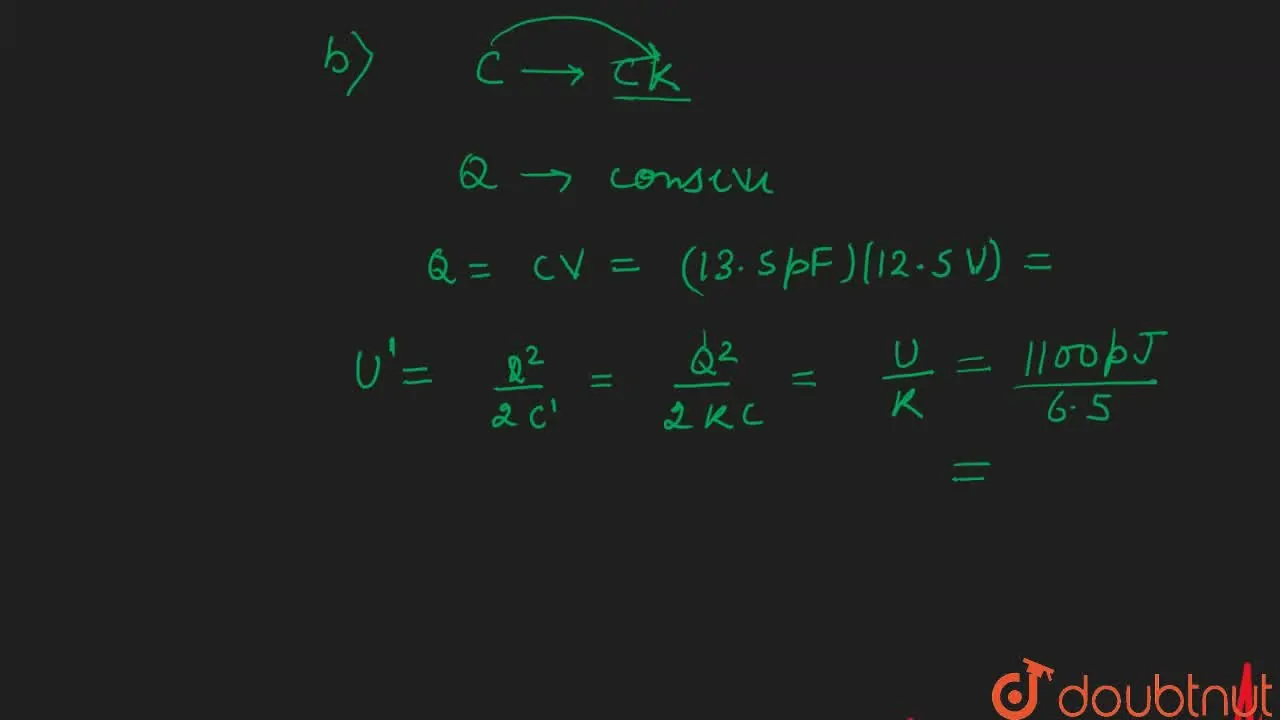 b) C → CK
Q → conserve
Q = CV = (13.5pF)(12.5V) =
U' = Q²/2C' = Q²/2KC = U/K = 1100pJ/6.5
=
doubtnut